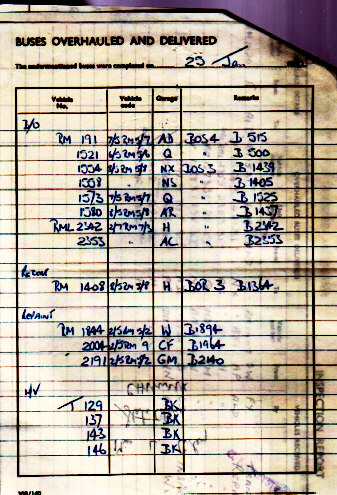 BUSES OVERHAULED AND DELIVERED
The undermentioned buses were completed on 25 Jan
Vehicle No. Vehicle code Garage Remarks
B/O
RM 191 7/5RM5/7 AD BOS4 B 515
1521 6/5RM5/6 Q " B 500
1554 8/5RM5/8 NX BOS3 B 1439
1558 " NS " B 1405
1573 7/5RM5/7 Q " B 1525
1580 8/5RM5/8 AR " B 1437
RML 2342 2/7RM7/3 H " B2342
2353 " AC " B2353
RM 1408 8/5RM5/8 H BOR 3 B1364
REPAINT
RM 1844 W B1894
2004 CF B1964
2191 GM B2140
HV
T 129 BK
137 BK
143 BK
146 BK
INSPECTION REPORT